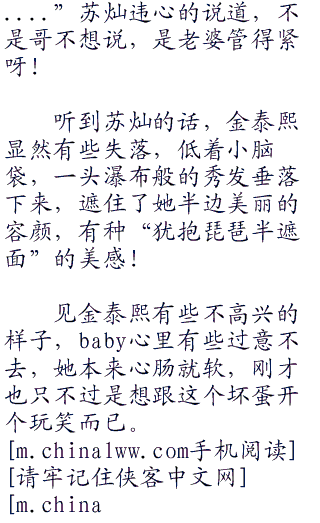 ....”苏灿违心的说道，不
是哥不想说，是老婆管得紧
呀！
听到苏灿的话，金泰熙
显然有些失落，低着小脑
袋，一头瀑布般的秀发垂落
下来，遮住了她半边美丽的
容颜，有种“犹抱琵琶半遮
面”的美感！
见金泰熙有些不高兴的
样子，baby心里有些过意不
去，她本来心肠就软，刚才
也只不过是想跟这个坏蛋开
个玩笑而已。
[m.chinalww.com手机阅读]
[请牢记住侠客中文网]
[m.china